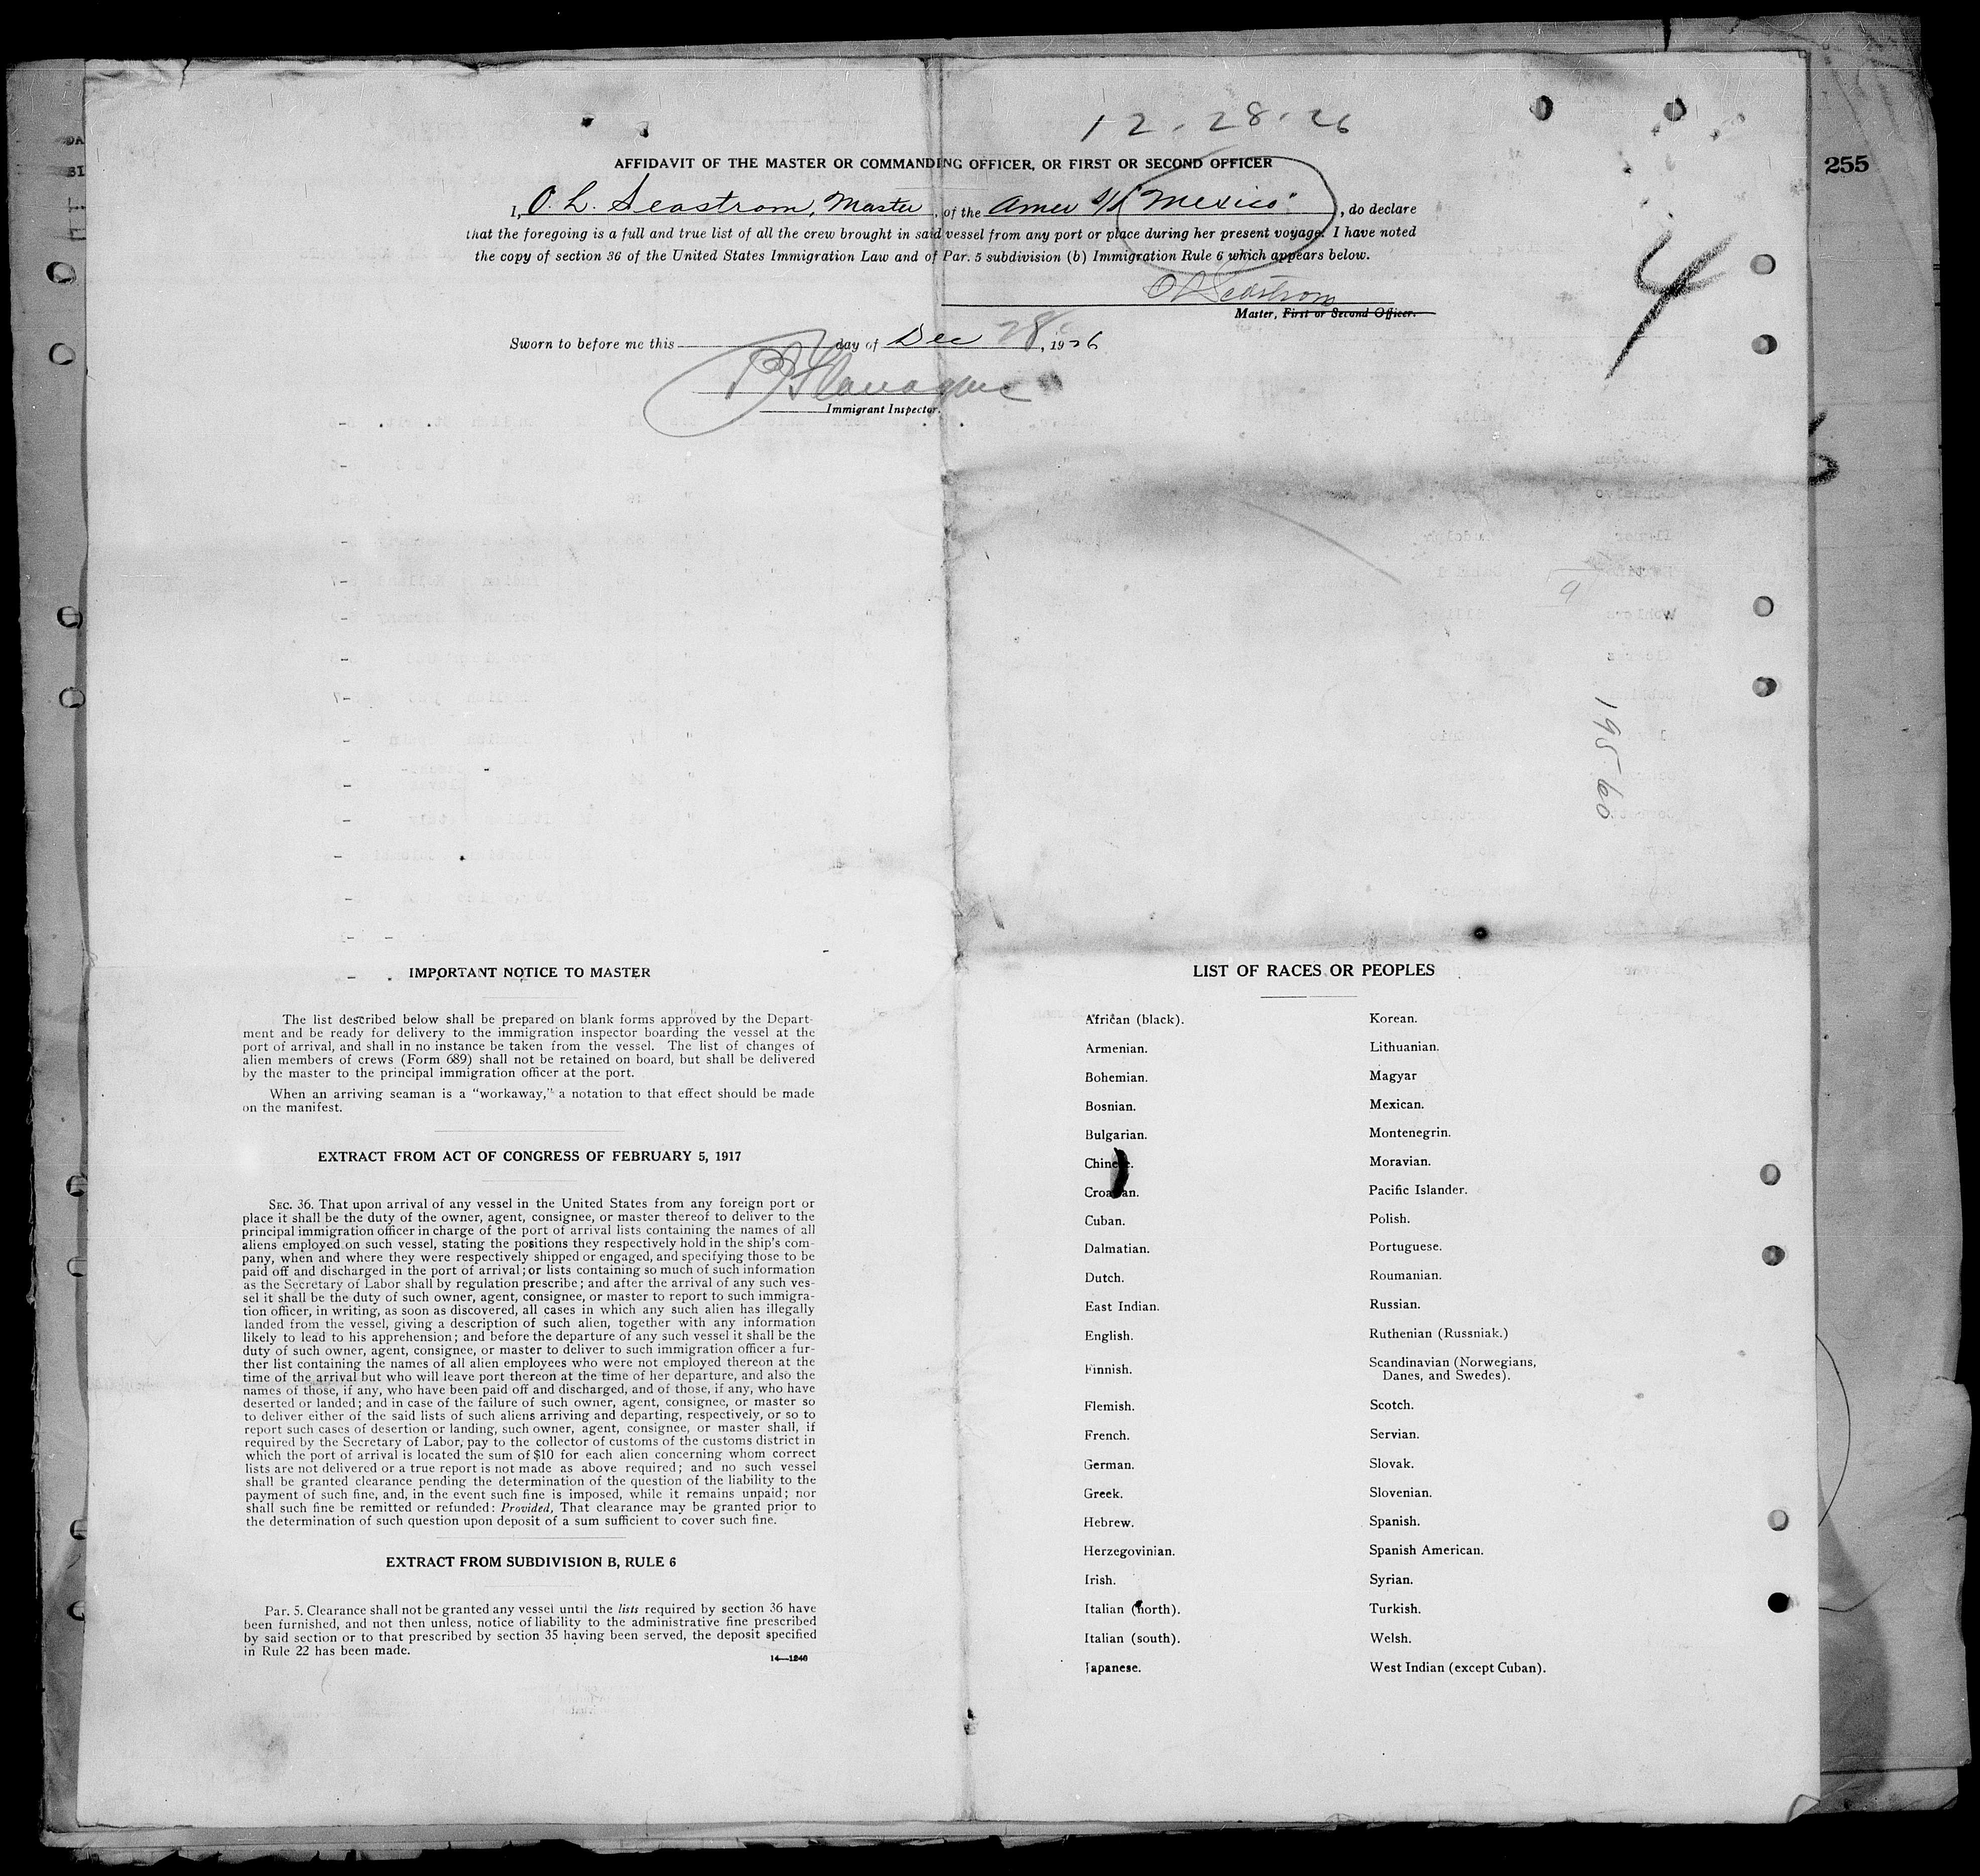 12-28-26
AFFIDAVIT OF THE MASTER OR COMMANDING OFFICER, OR FIRST OR SECOND OFFICER
255
I, O. L. Seastrom, Master, of the Amer S/S "Mexico", do declare
that the foregoing is a full and true list of all the crew brought in said vessel from any port or place during her present voyage. I have noted
the copy of section 36 of the United States Immigration Law and of Par. 5 subdivision (b) Immigration Rule 6 which appears below.
4
O L Seastrom
Master, First or Second Officer.
Sworn to before me this day of Dec 28, 1926
Immigrant Inspector.
9
19560
IMPORTANT NOTICE TO MASTER
The list described below shall be prepared on blank forms approved by the Depart-
ment and be ready for delivery to the immigration inspector boarding the vessel at the
port of arrival, and shall in no instance be taken from the vessel. The list of changes of
alien members of crews (Form 689) shall not be retained on board, but shall be delivered
by the master to the principal immigration officer at the port.
When an arriving seaman is a "workaway," a notation to that effect should be made
on the manifest.
EXTRACT FROM ACT OF CONGRESS OF FEBRUARY 5, 1917
SEC. 36. That upon arrival of any vessel in the United States from any foreign port or
place it shall be the duty of the owner, agent, consignee, or master thereof to deliver to the
principal immigration officer in charge of the port of arrival lists containing the names of all
aliens employed on such vessel, stating the positions they respectively hold in the ship's com-
pany, when and where they were respectively shipped or engaged, and specifying those to be
paid off and discharged in the port of arrival; or lists containing so much of such information
as the Secretary of Labor shall by regulation prescribe; and after the arrival of any such ves-
sel it shall be the duty of such owner, agent, consignee, or master to report to such immigra-
tion officer, in writing, as soon as discovered, all cases in which any such alien has illegally
landed from the vessel, giving a description of such alien, together with any information
likely to lead to his apprehension; and before the departure of any such vessel it shall be the
duty of such owner, agent, consignee, or master to deliver to such immigration officer a fur-
ther list containing the names of all alien employees who were not employed thereon at the
time of the arrival but who will leave port thereon at the time of her departure, and also the
names of those, if any, who have been paid off and discharged, and of those, if any, who have
deserted or landed; and in case of the failure of such owner, agent, consignee, or master so
to deliver either of the said lists of such aliens arriving and departing, respectively, or so to
report such cases of desertion or landing, such owner, agent, consignee, or master shall, if
required by the Secretary of Labor, pay to the collector of customs of the customs district in
which the port of arrival is located the sum of $10 for each alien concerning whom correct
lists are not delivered or a true report is not made as above required; and no such vessel
shall be granted clearance pending the determination of the question of the liability to the
payment of such fine, and, in the event such fine is imposed, while it remains unpaid; nor
shall such fine be remitted or refunded: Provided, That clearance may be granted prior to
the determination of such question upon deposit of a sum sufficient to cover such fine.
EXTRACT FROM SUBDIVISION B, RULE 6
Par. 5. Clearance shall not be granted any vessel until the lists required by section 36 have
been furnished, and not then unless, notice of liability to the administrative fine prescribed
by said section or to that prescribed by section 35 having been served, the deposit specified
in Rule 22 has been made.
14—1240
LIST OF RACES OR PEOPLES
African (black).
Armenian.
Bohemian.
Bosnian.
Bulgarian.
Chinese.
Croatian.
Cuban.
Dalmatian.
Dutch.
East Indian.
English.
Finnish.
Flemish.
French.
German.
Greek.
Hebrew.
Herzegovinian.
Irish.
Italian (north).
Italian (south).
Japanese.
Korean.
Lithuanian.
Magyar
Mexican.
Montenegrin.
Moravian.
Pacific Islander.
Polish.
Portuguese.
Roumanian.
Russian.
Ruthenian (Russniak.)
Scandinavian (Norwegians,
Danes, and Swedes).
Scotch.
Servian.
Slovak.
Slovenian.
Spanish.
Spanish American.
Syrian.
Turkish.
Welsh.
West Indian (except Cuban).